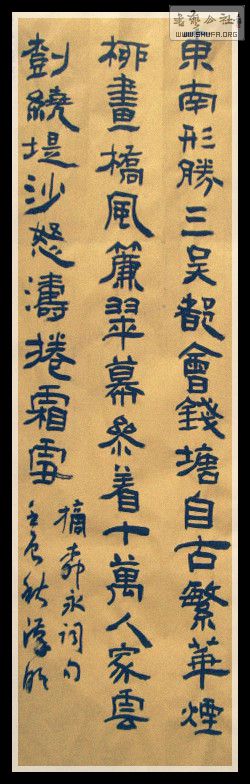 書藝公社
WWW.SHUFA.ORG
東南形勝三吴都會錢塘自古繁華煙
柳畫橋風簾翠幕叅差十萬人家雲
樹繞堤沙怒濤捲霜雪
摘柳永詞句
壬辰秋